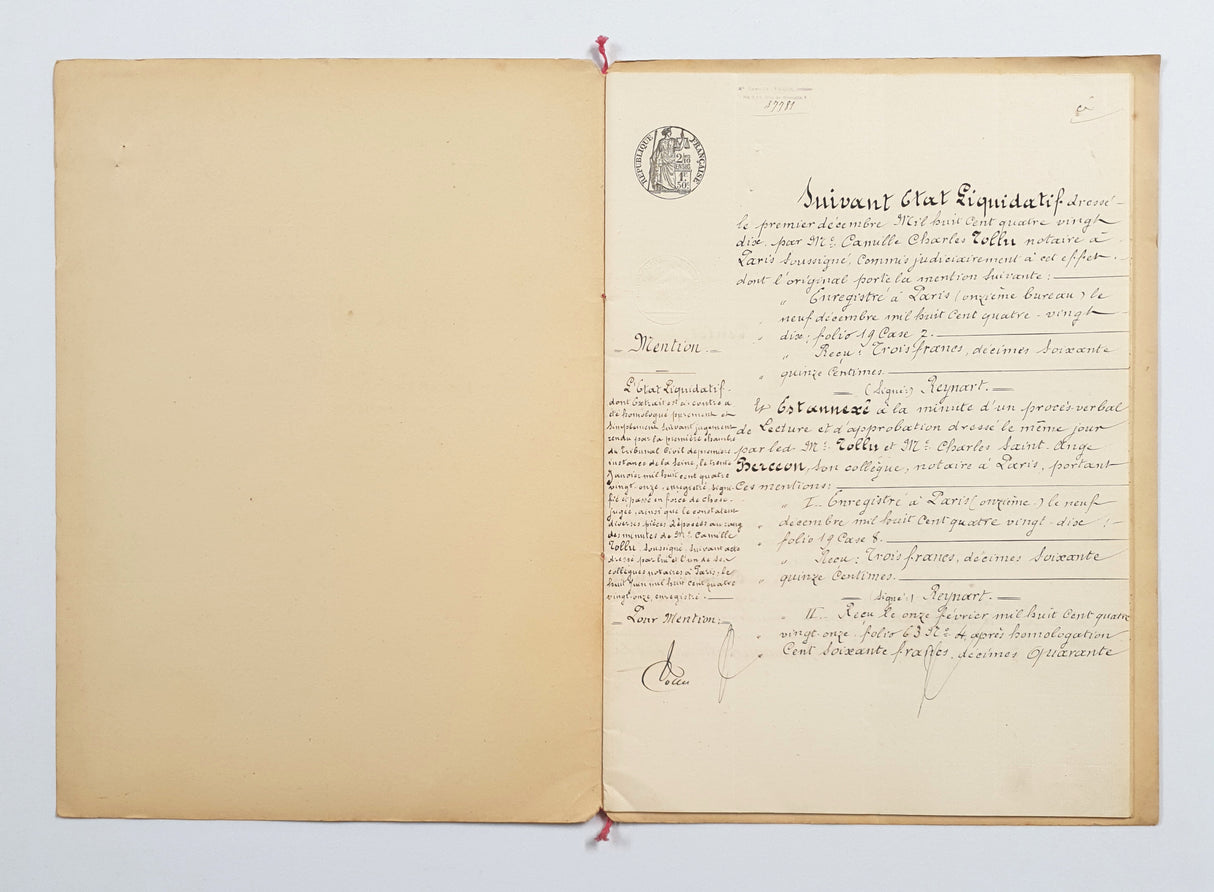 37781
RÉPUBLIQUE FRANÇAISE
2/10
EN SUS
1F
50c
Suivant Etat Liquidatif dressé
le premier décembre Mil huit Cent quatre vingt
dix, par Me Camille Charles Tollu notaire à
Paris Soussigné, Commis judiciairement à cet effet
dont l'original porte la mention Suivante :
" Enregistré à Paris (onzième bureau) le
" neuf décembre mil huit Cent quatre-vingt
" dix; folio 19 Case 2.
" Reçu : Trois francs, décimes Soixante
" quinze Centimes.
(Signé:) Reynart.
Et Est annexé à la minute d'un procès-verbal
de Lecture et d'approbation dressé le même jour
par led. Me Tollu et Me Charles Saint-Ange
Berceon, Son collègue, notaire à Paris, portant
Ces mentions:
" I.. Enregistré à Paris (onzième.) le neuf
" décembre mil huit Cent quatre vingt-dix ;
" folio 19 Case 8.
" Recu : Trois francs, décimes Soixante
" quinze Centimes.
(Signé:) Reynart.
" II.. Reçu le onze février mil huit Cent quatre
" vingt-onze, folio 63 No 4 après homologation
" Cent Soixante francs, décimes Quarante
Mention
L'Etat Liquidatif
dont Extrait est ci-contre a
été homologué purement et
Simplement Suivant jugement
rendu par la première chambre
du Tribunal Civil de première
instance de la Seine, le trente
Janvier mil huit cent quatre
vingt-onze, enregistré, signi-
fié et passé en force de chose
jugée, ainsi que le constatent
diverses pièces déposées au rang
des minutes de Me Camille
Tollu, Soussigné, Suivant acte
dressé par lui et l'un de Ses
collègues notaires à Paris, le
huit Juin mil huit Cent quatre
vingt-onze, enregistré.
Pour Mention:
Tollu